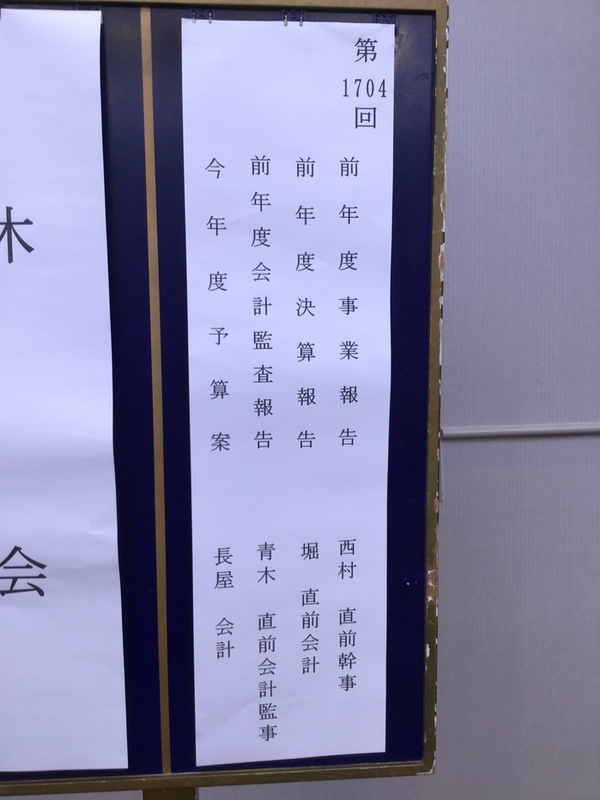 第1704回
前年度事業報告 西村 直前幹事
前年度決算報告 堀 直前会計
前年度会計監査報告 青木 直前会計監事
今年度予算案 長屋 会計
木
会